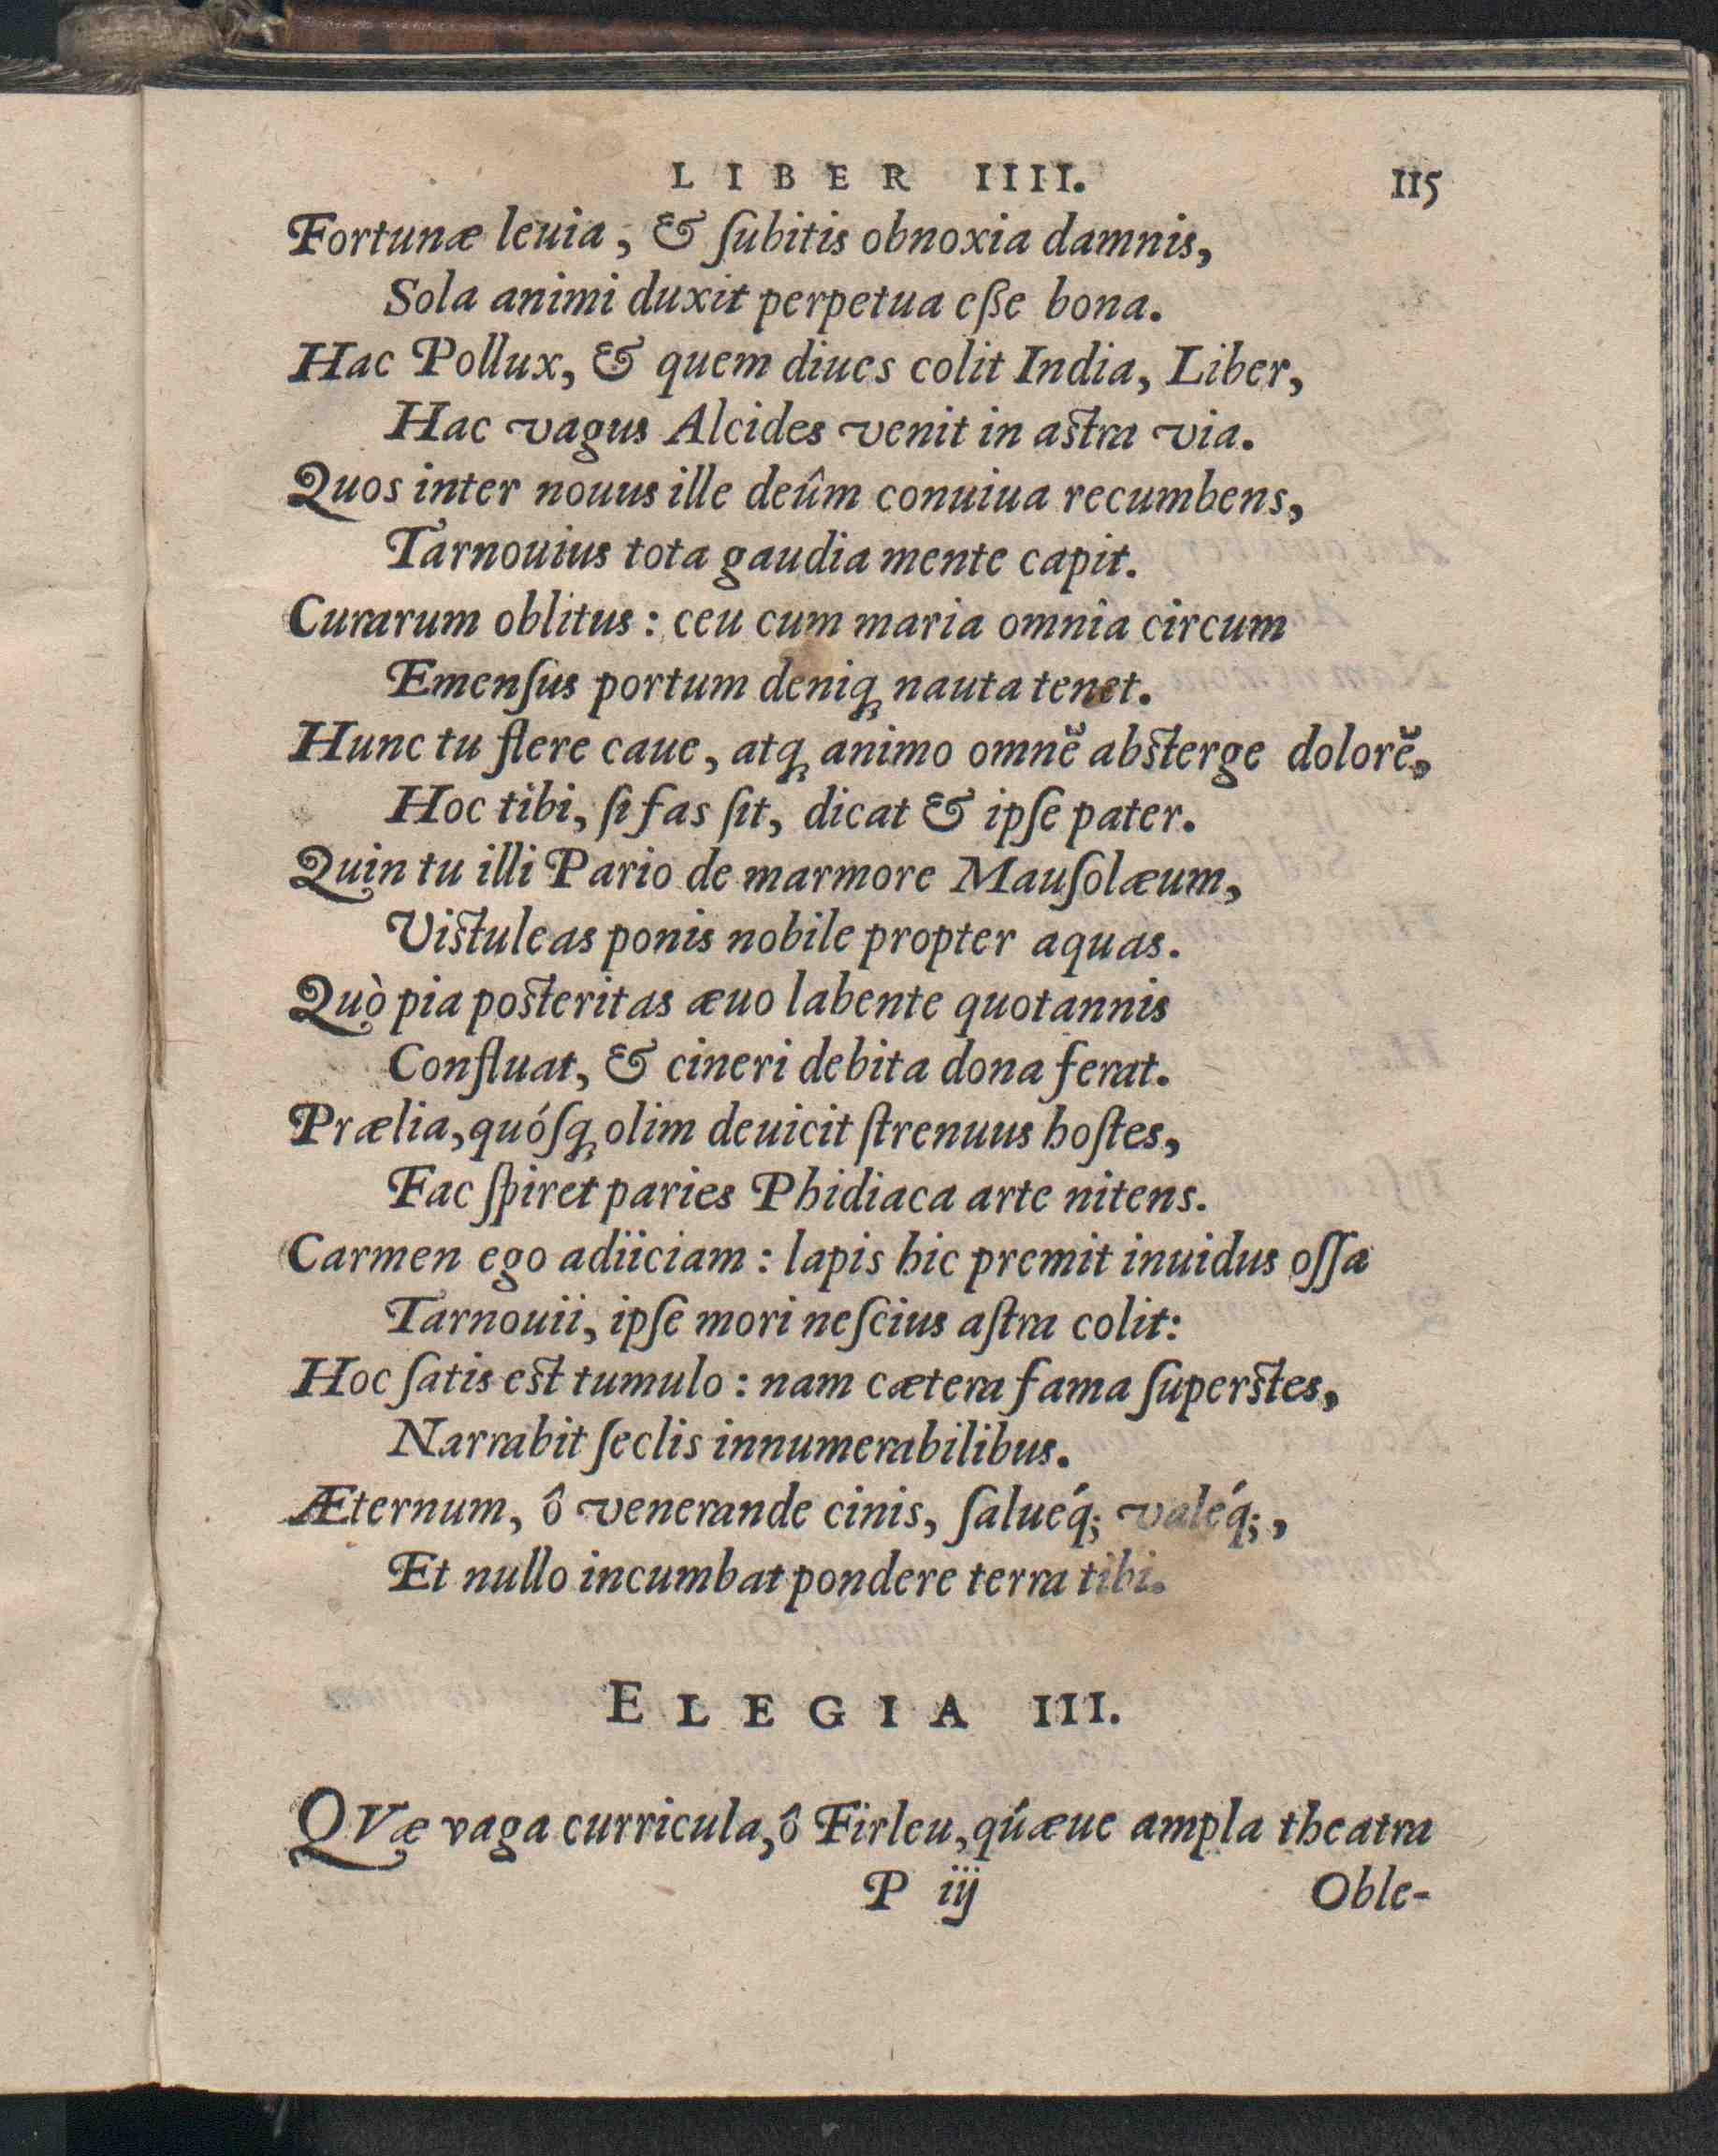 LIBER IIII. 115
Fortunæ leuia, & ſubitis obnoxia damnis,
Sola animi duxit perpetua eſſe bona.
Hac Pollux, & quem diues colit India, Liber,
Hac vagus Alcides venit in aſtra via.
Quos inter nouus ille deûm conuiua recumbens,
Tarnouius tota gaudia mente capit.
Curarum oblitus: ceu cum maria omnia circum
Emenſus portum deniq̃ nauta tenet.
Hunc tu flere caue, atq̃ animo omnẽ abſterge dolorẽ,
Hoc tibi, ſi fas ſit, dicat & ipſe pater.
Quin tu illi Pario de marmore Mauſolæum,
Viſtuleas ponis nobile propter aquas.
Quò pia poſteritas æuo labente quotannis
Confluat, & cineri debita dona ferat.
Prælia, quóſq̃ olim deuicit ſtrenuus hoſtes,
Fac ſpiret paries Phidiaca arte nitens.
Carmen ego adiiciam: lapis hic premit inuidus oſſa
Tarnouii, ipſe mori neſcius aſtra colit:
Hoc ſatis eſt tumulo: nam cætera fama ſuperſtes,
Narrabit ſeclis innumerabilibus.
Æternum, ô venerande cinis, ſalueq́; valeq́;,
Et nullo incumbat pondere terra tibi.
ELEGIA III.
QVæ vaga curricula, ô Firleu, qúæue ampla theatra
P iij Oble-